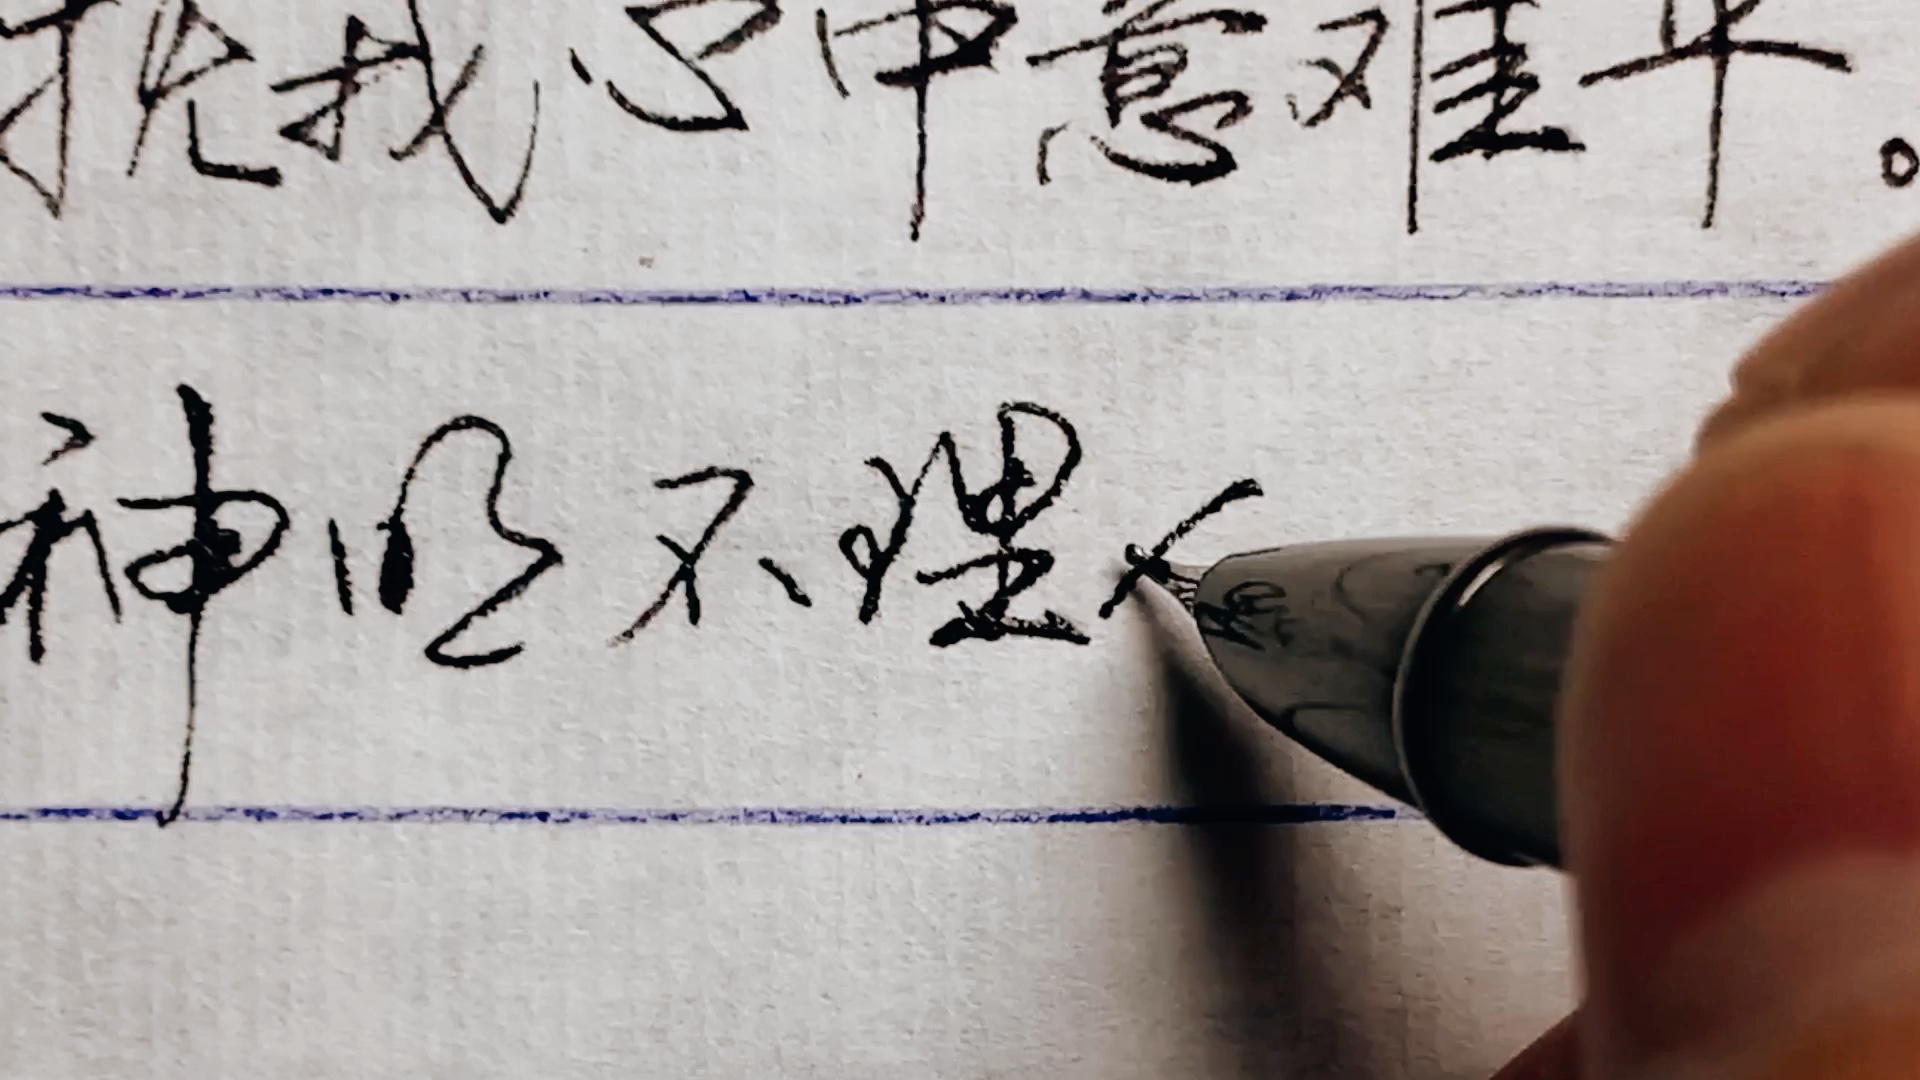 抚我心中意难平。
神明不理